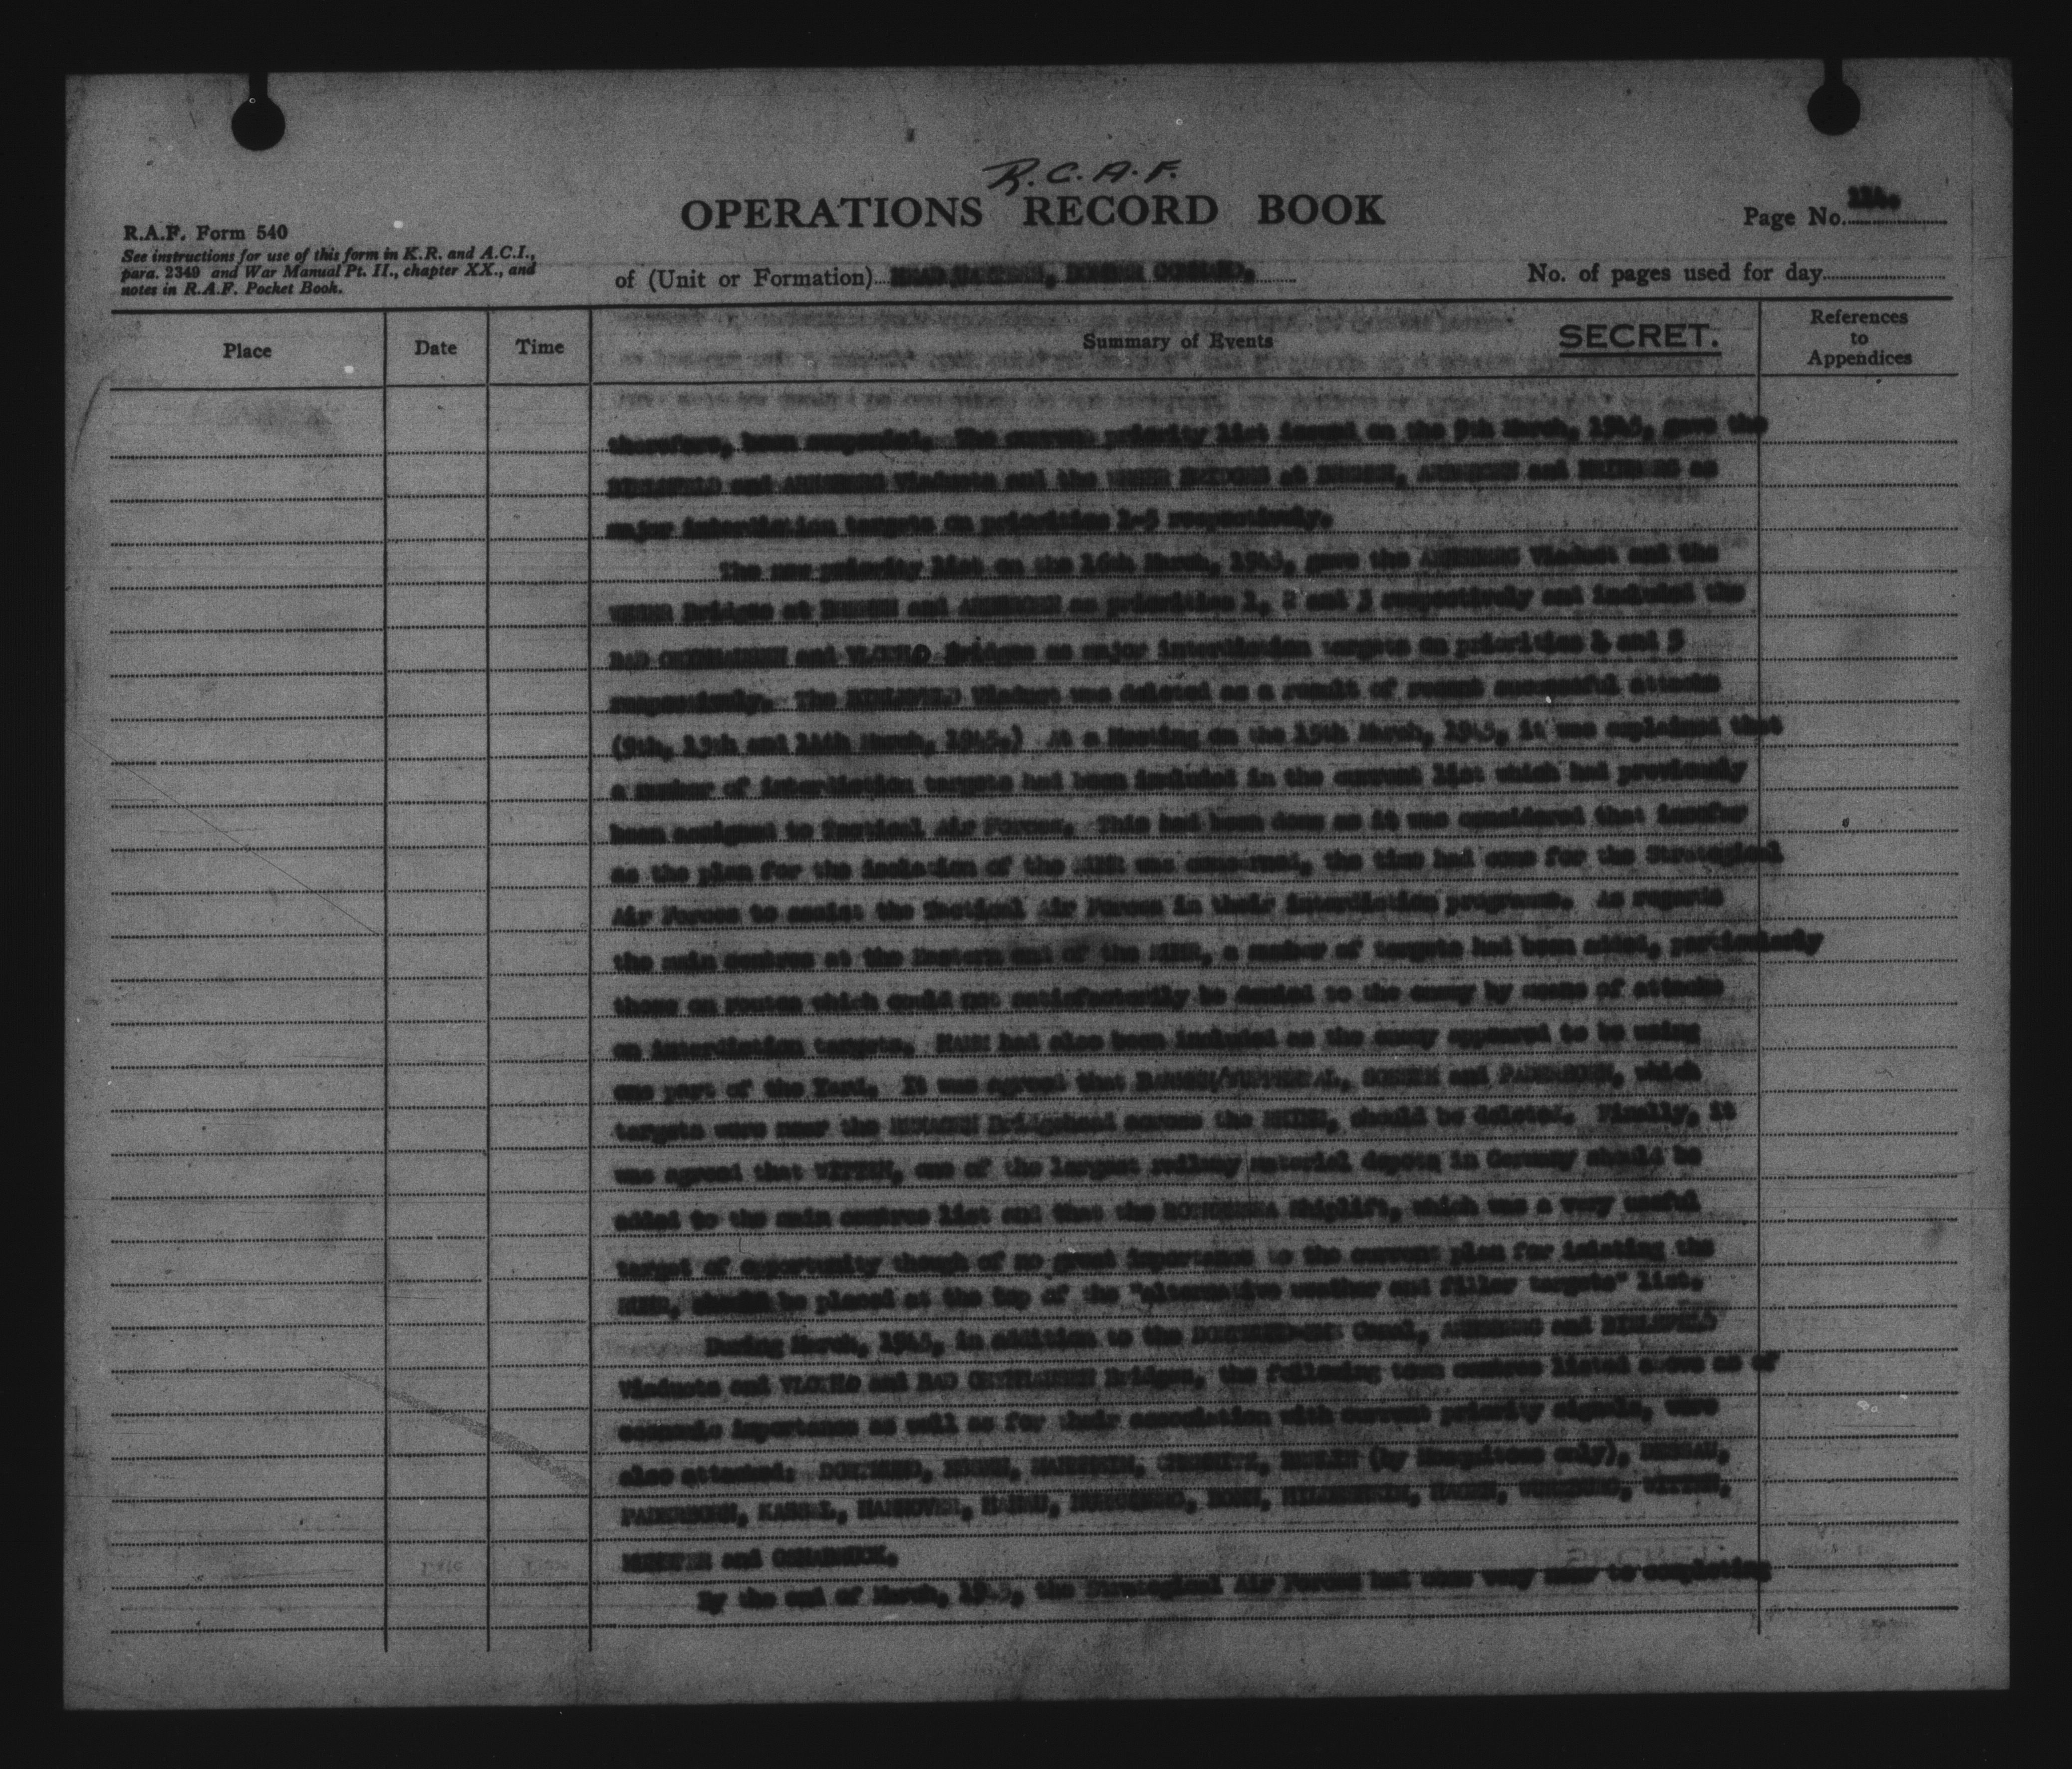 R.C.A.F.
OPERATIONS RECORD BOOK
Page No.
R.A.F. Form 540
See instructions for use of this form in K.R. and A.C.I.,
para. 2349 and War Manual Pt. II., chapter XX., and
notes in R.A.F. Pocket Book.
of (Unit or Formation) HEADQUARTERS, BOMBER COMMAND.
No. of pages used for day
Place Date Time Summary of Events SECRET. References to Appendices
therefore, been suspended. The current priority list issued on the 9th March, 1945, gave the
BIELEFELD and ARNSBERG Viaducts and the WESER BRIDGES at BREMEN, and as
major interdiction targets on priorities 1-5 respectively.
The new priority list on the 16th March, 1945, gave the ARNSBERG Viaduct and the
WESER Bridges at BREMEN and as priorities 1, 2 and 3 respectively and included the
BAD OEYNHAUSEN and VLOTHO Bridges as major interdiction targets on priorities 4 and 5
respectively. The BIELEFELD Viaduct was deleted as a result of recent successful attacks
(9th, 13th and 14th March, 1945.) At a Meeting on the 15th March, 1945, it was explained that
a number of interdiction targets had been included in the current list which had previously
been assigned to Tactical Air Forces. This had been done as it was considered that insofar
as the plan for the isolation of the RUHR was concerned, the time had come for the Strategical
Air Forces to assist the Tactical Air Forces in their interdiction programme. As regards
the main centres at the Eastern end of the RUHR, a number of targets had been added, particularly
those on routes which could not satisfactorily be denied to the enemy by means of attacks
on interdiction targets. HAMM had also been included as the enemy appeared to be using
one part of the Yard. It was agreed that BARMEN/WUPPERTAL, and which
targets were near the REMAGEN Bridgehead across the RHINE, should be deleted. Finally, it
was agreed that WITTEN, one of the largest railway material depots in Germany should be
added to the main centres list and that the ROTHENSEE Shiplift, which was a very useful
target of opportunity though of no great importance to the current plan for isolating the
RUHR, should be placed at the top of the "alternative weather and filler targets" list.
During March, 1945, in addition to the DORTMUND-EMS Canal, ARNSBERG and BIELEFELD
Viaducts and VLOTHO and BAD OEYNHAUSEN Bridges, the following town centres listed above as of
economic importance as well as for their association with current priority signals, were
also attacked: DORTMUND, ESSEN, MANNHEIM, CHEMNITZ, BERLIN (by Mosquitoes only), DESSAU,
PADERBORN, KASSEL, HANNOVER, HANAU, NURNBERG, BONN, HILDESHEIM, HAGEN, WURZBURG, WITTEN,
MUNSTER and OSNABRUCK.
By the end of March, 1945, the Strategical Air Forces had come very near to completing